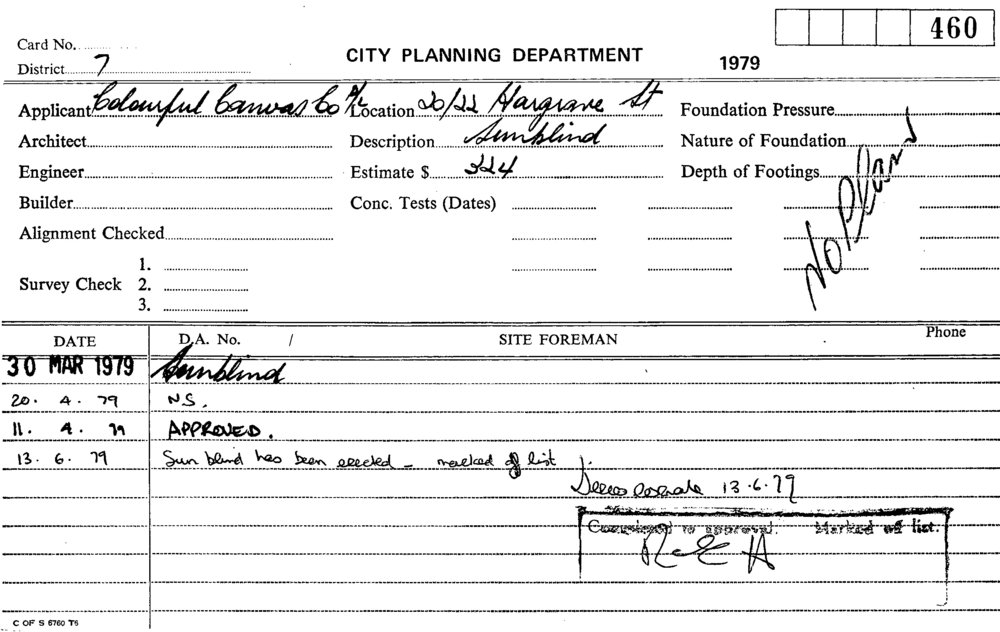 460
Card No.
CITY PLANNING DEPARTMENT
1979
District 7
Applicant Colourful Canvas Co P/L Location 20/22 Hargrave St Foundation Pressure
Architect Description Sunblind Nature of Foundation
Engineer Estimate $ 324 Depth of Footings
Builder Conc. Tests (Dates)
No Plans
Alignment Checked
1.
Survey Check 2.
3.
DATE D.A. No. / SITE FOREMAN Phone
30 MAR 1979 Sunblind
20. 4. 79 N.S.
11. 4. 79 APPROVED.
13. 6. 79 Sun blind has been erected - marked of list
13.6.79
Completed to approval. Marked off list.
C OF S 6760 T6